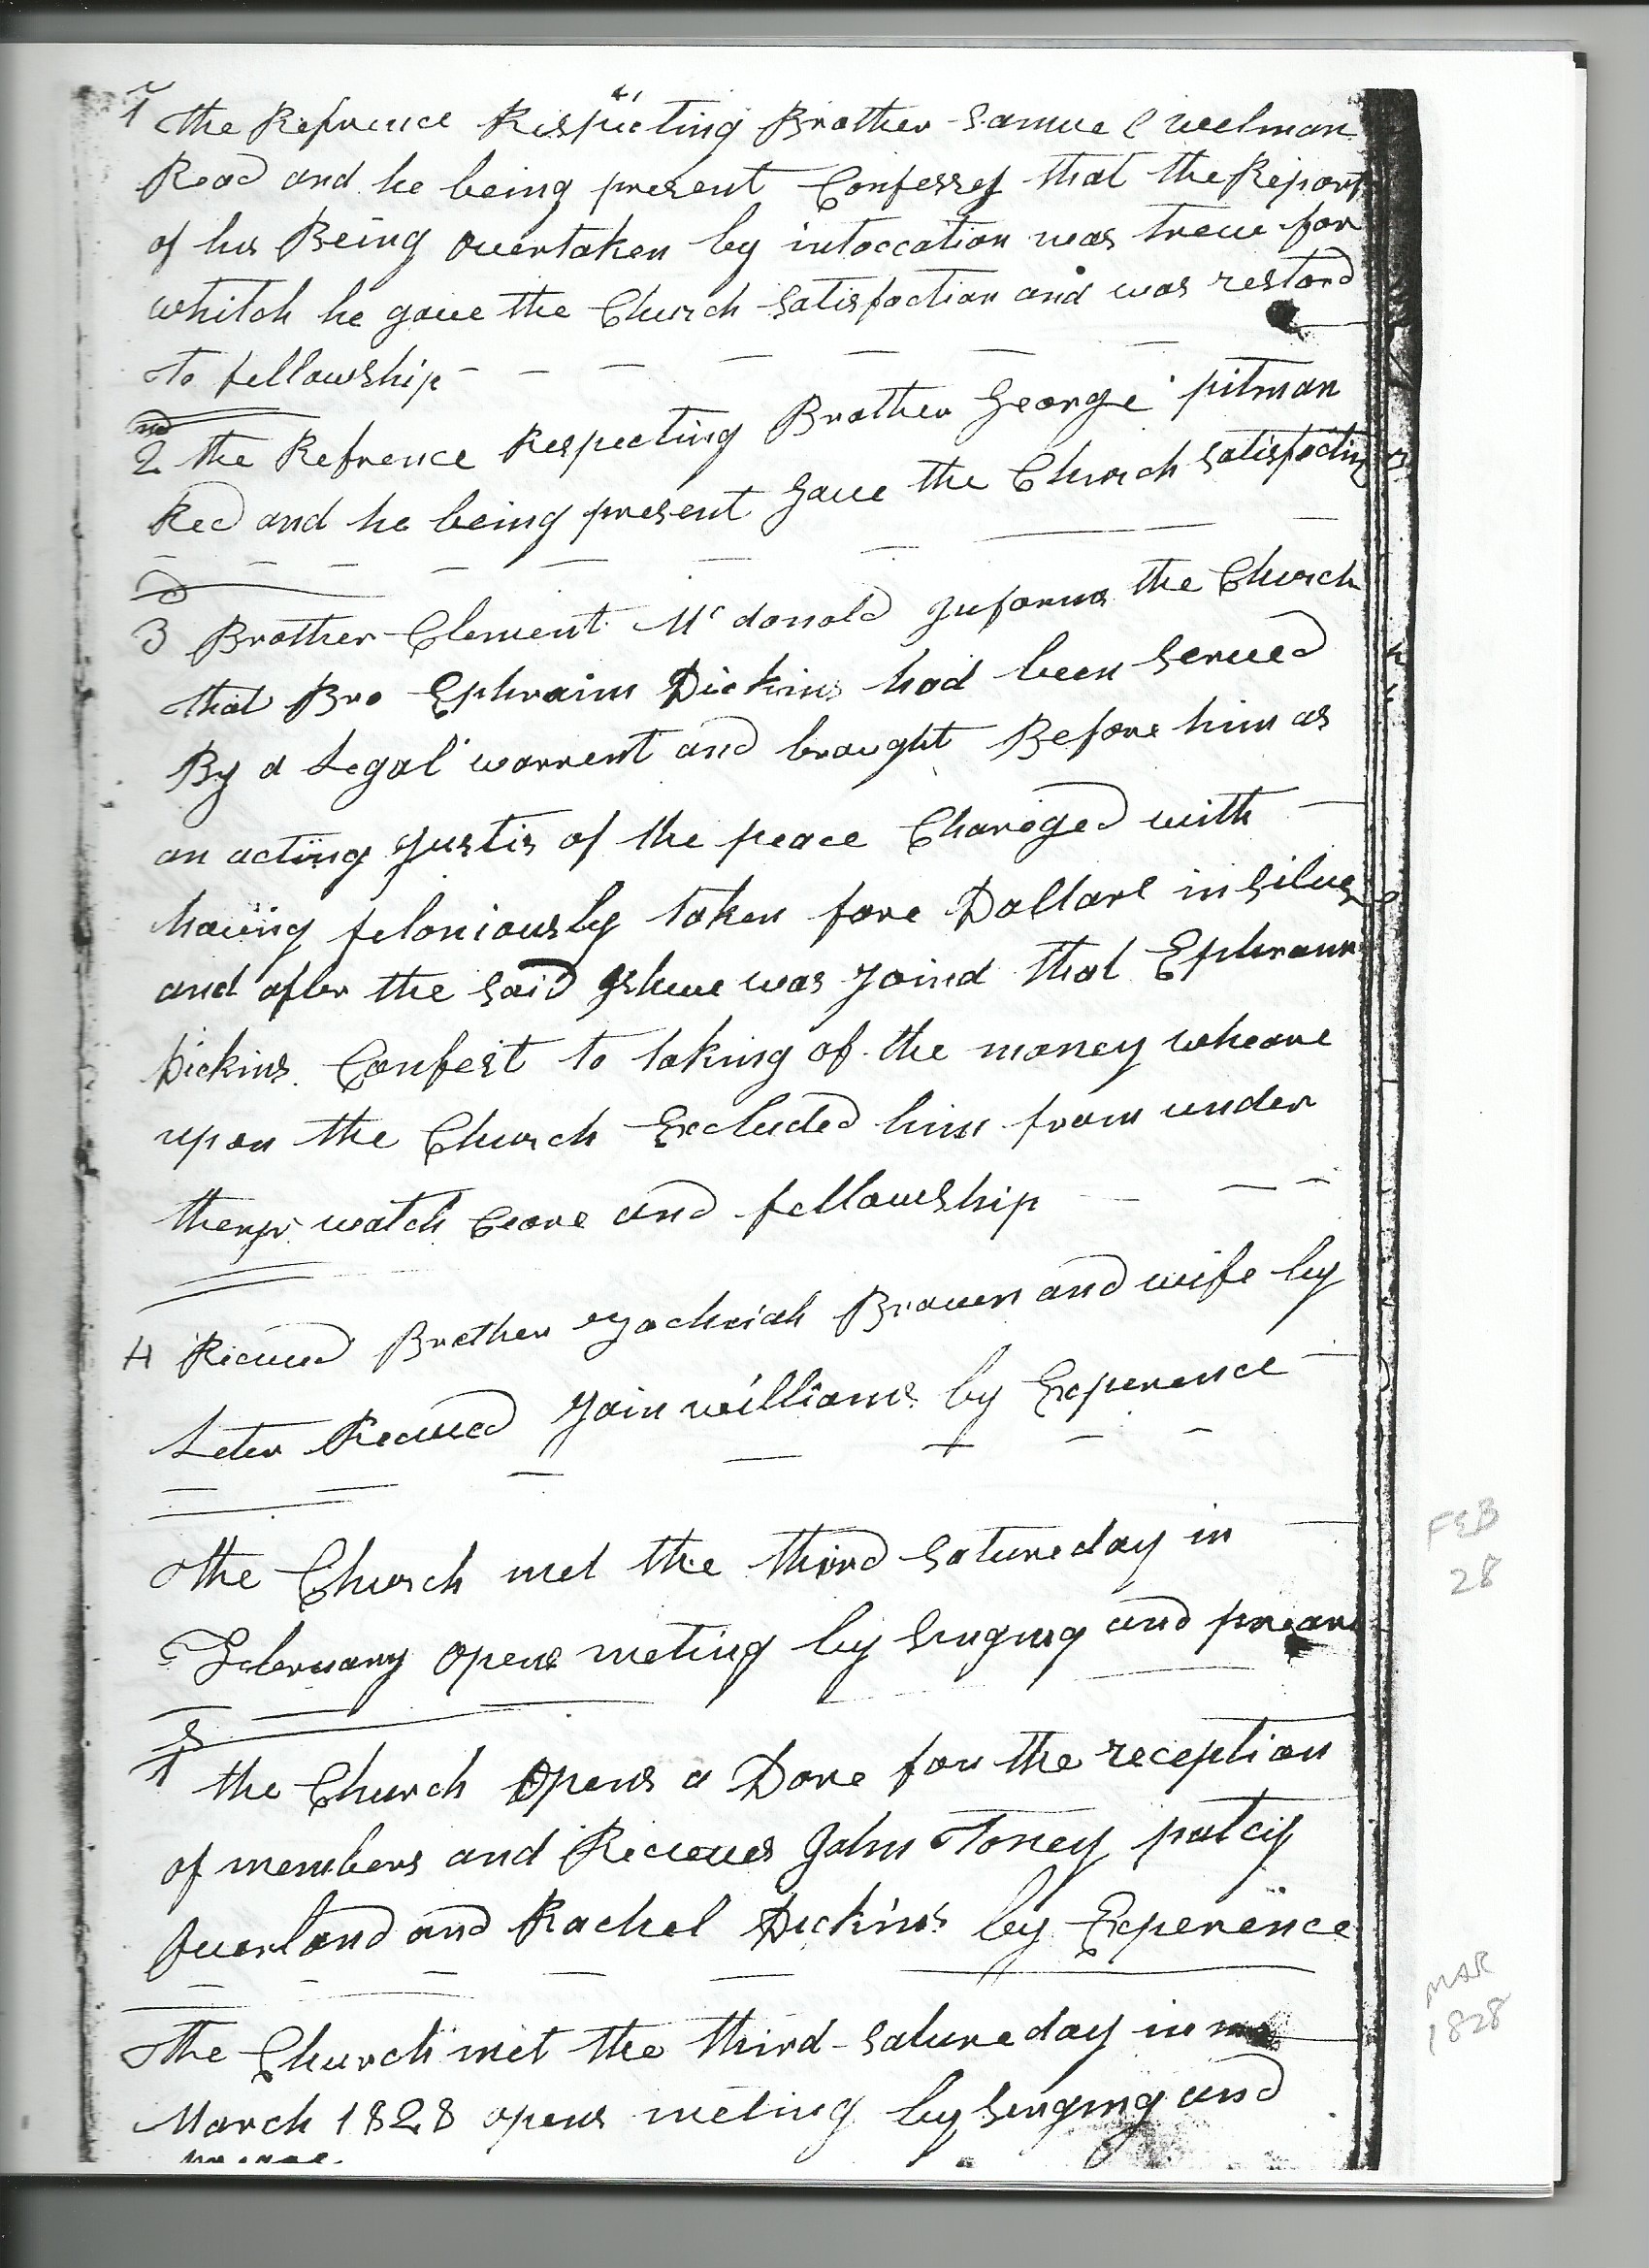 1 the Refrence Respecting Brother Samuel Welman
Read and he being present Confesses that the Report
of his Being overtaken by intoccation was treue for
whitch he gave the Church satisfaction and was restord
To fellowship
2nd the Refrence Respecting Brother George pitman
Red and he being present gave the Church satisfaction
3d Brother Clement Mc donold Informs the Church
that Bro Ephraim Dickins had been served
By a Legal warrent and braught Before him as
an acting Justis of the peace Chareged with
having feloniously taken fore Dollars in Silver
and after the said Ishue was Joind that Ephraim
Dickins Confest to taking of the money wheare
upon the Church Excluded him from under
watch Ceare and fellowship
4 Recieved Brother Brown and wife by
Leter Recieved Jain williams by Experence
The Church met the third Satureday in
February opens meting by Singing and
1s the Church opens a Dore for the reception
of members and Recieves John Toney patcy
and Rachel Dickins by Experence
The Church met the third Satureday in
March 1828 opens meting by Singing and
FEB
28
MAR
1828